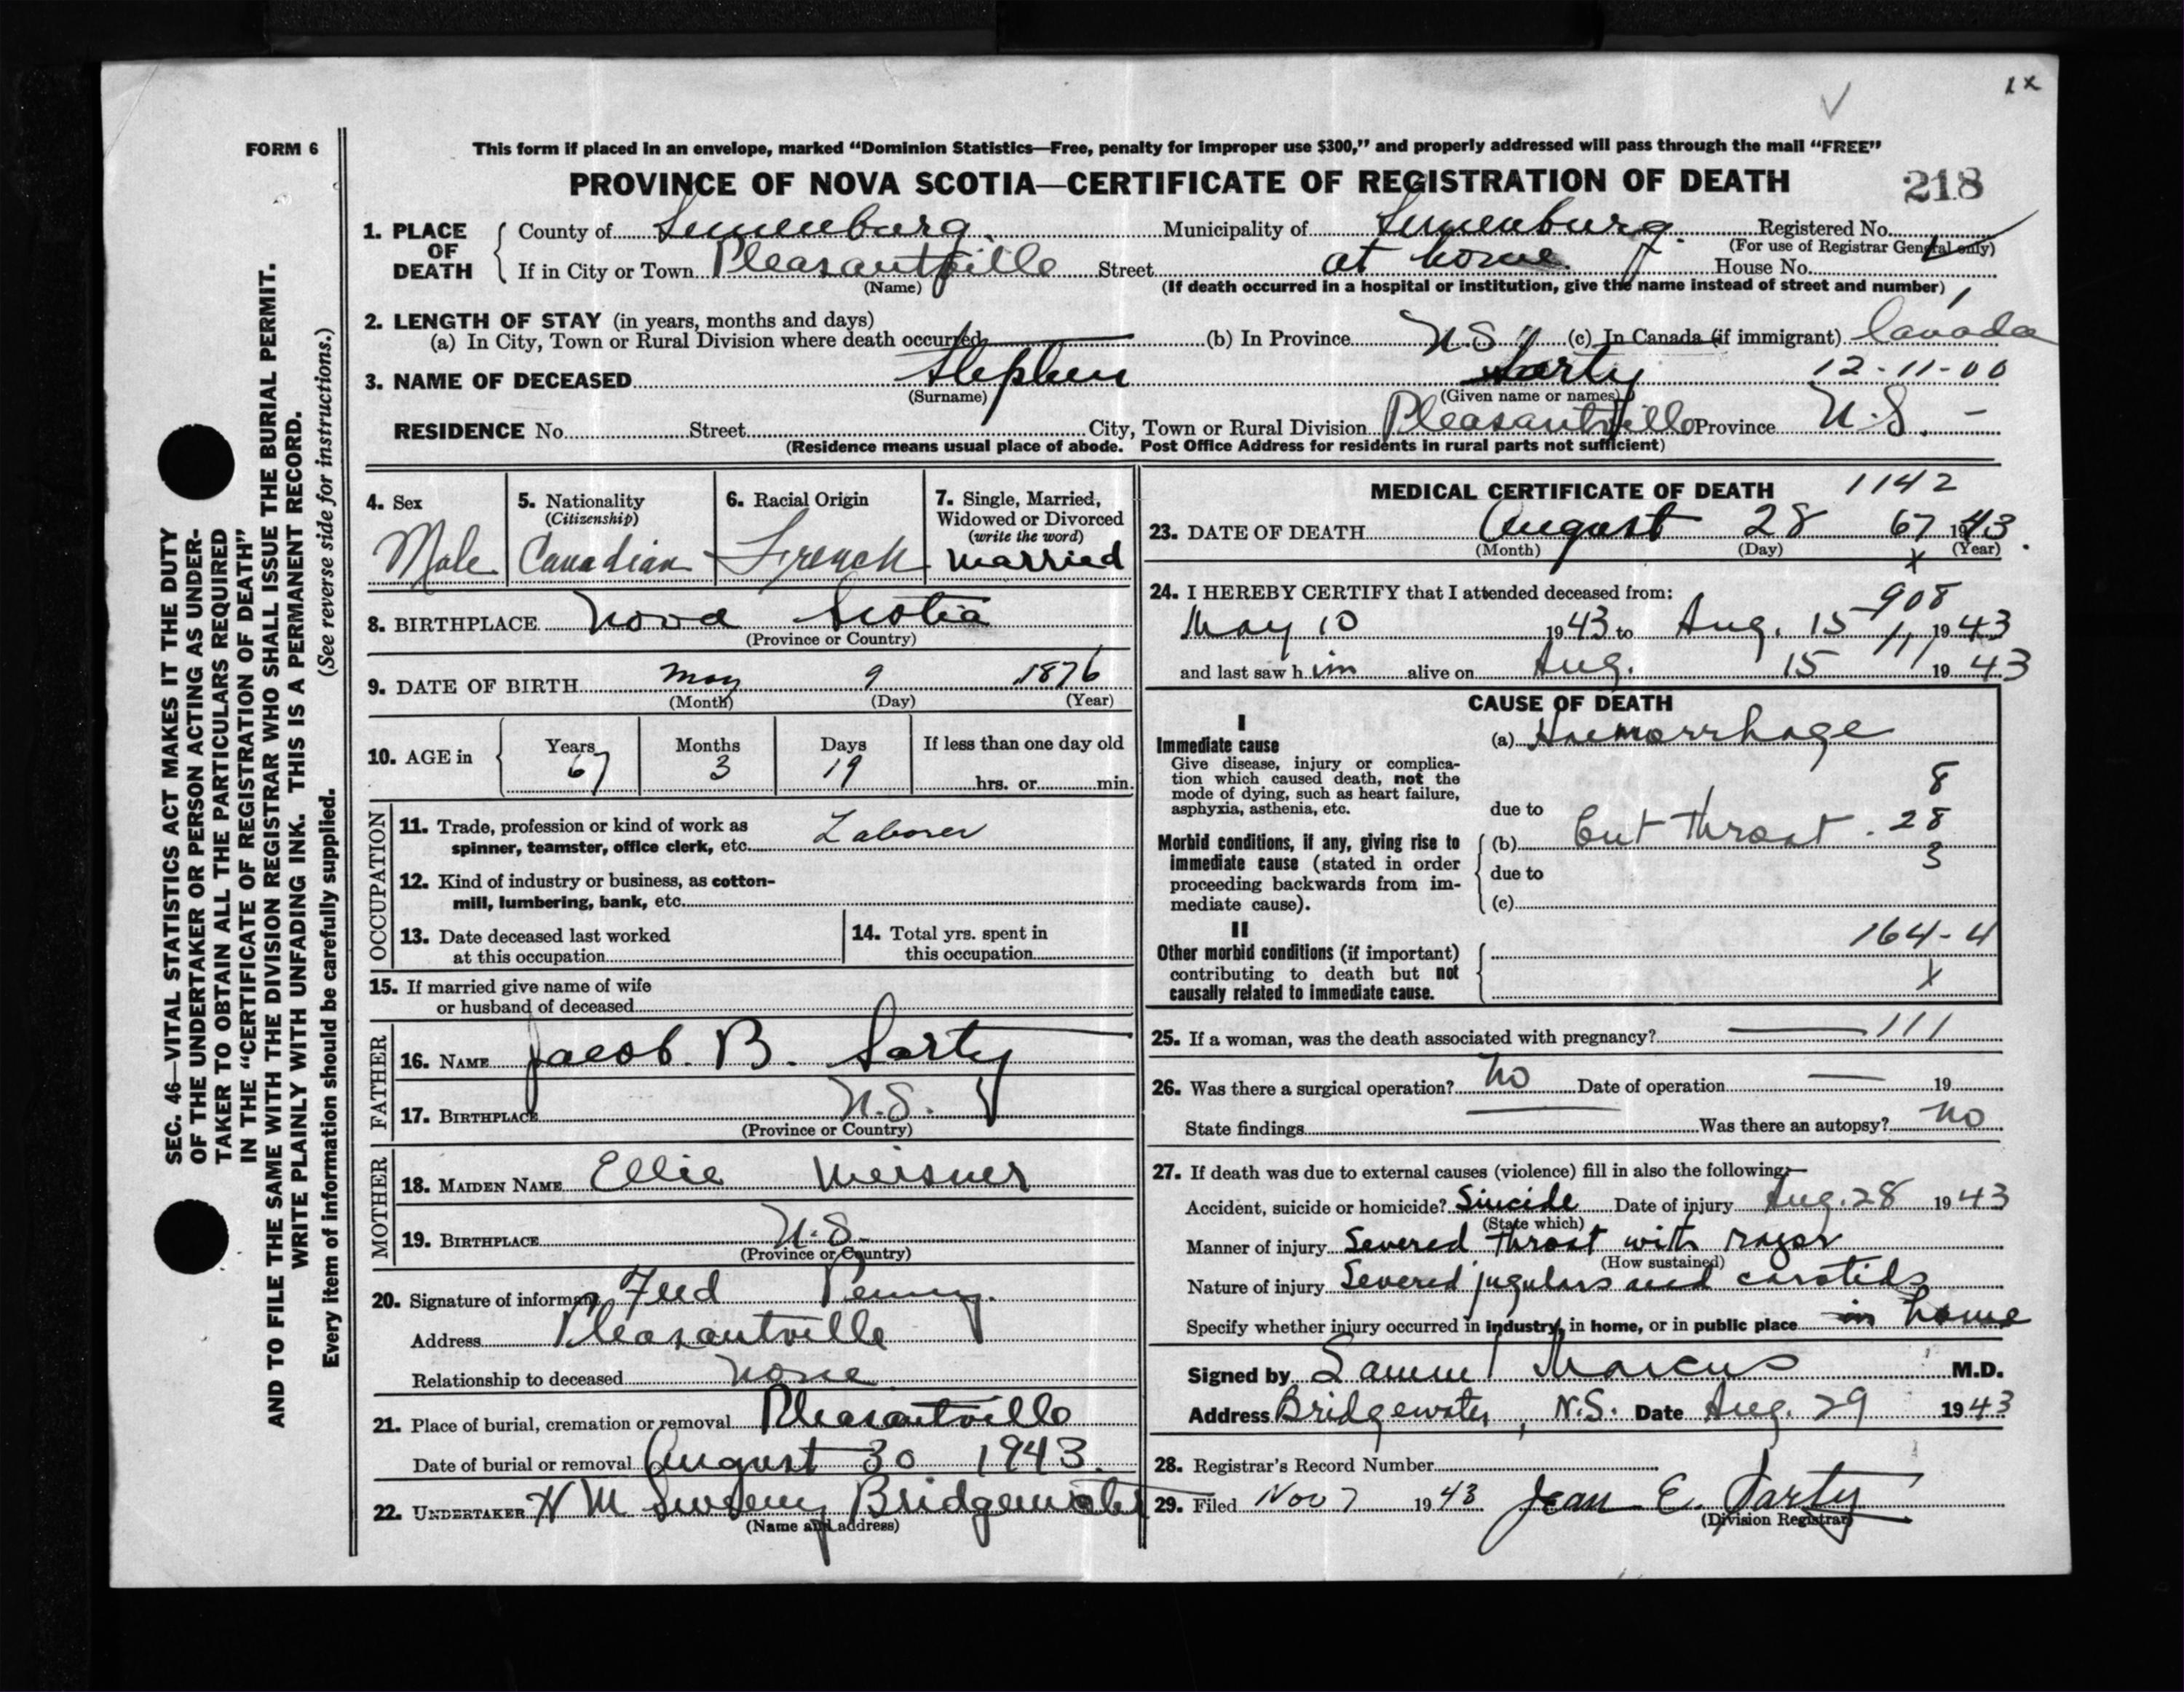 1 x
FORM 6
This form if placed in an envelope, marked “Dominion Statistics—Free, penalty for improper use $300,” and properly addressed will pass through the mail “FREE”
PROVINCE OF NOVA SCOTIA—CERTIFICATE OF REGISTRATION OF DEATH 218
1. PLACE OF DEATH County of Lunenburg. Municipality of Lunenburg. Registered No.
(For use of Registrar General only)
If in City or Town Pleasantville Street at home House No.
(Name) (If death occurred in a hospital or institution, give the name instead of street and number)
2. LENGTH OF STAY (in years, months and days)
(a) In City, Town or Rural Division where death occurred (b) In Province N.S. (c) In Canada (if immigrant) Canada
3. NAME OF DECEASED Stephen Sarty 12-11-00
(Surname) (Given name or names)
RESIDENCE No. Street City, Town or Rural Division Pleasantville Province N.S. -
(Residence means usual place of abode. Post Office Address for residents in rural parts not sufficient)
4. Sex Male
5. Nationality (Citizenship) Canadian
6. Racial Origin French
7. Single, Married, Widowed or Divorced (write the word) Married
8. BIRTHPLACE Nova Scotia
(Province or Country)
9. DATE OF BIRTH May 9 1876
(Month) (Day) (Year)
10. AGE in Years 67 Months 3 Days 19 If less than one day old hrs. or min.
OCCUPATION
11. Trade, profession or kind of work as spinner, teamster, office clerk, etc. Laborer
12. Kind of industry or business, as cotton-mill, lumbering, bank, etc.
13. Date deceased last worked at this occupation
14. Total yrs. spent in this occupation
15. If married give name of wife or husband of deceased
FATHER
16. NAME Jacob. B. Sarty
17. BIRTHPLACE N.S.
(Province or Country)
MOTHER
18. MAIDEN NAME Ellie Meisner
19. BIRTHPLACE N.S.
(Province or Country)
20. Signature of informant Fred Penny.
Address Pleasantville
Relationship to deceased None
21. Place of burial, cremation or removal Pleasantville
Date of burial or removal August 30 1943.
22. UNDERTAKER H M Sweeny Bridgewater
(Name and address)
MEDICAL CERTIFICATE OF DEATH 1142
23. DATE OF DEATH August 28 67 1943.
(Month) (Day) x (Year)
24. I HEREBY CERTIFY that I attended deceased from: 908
May 10 1943 to Aug. 15 111 1943
and last saw him alive on Aug. 15 1943
CAUSE OF DEATH
I
Immediate cause (a) Haemorrhage
Give disease, injury or complication which caused death, not the mode of dying, such as heart failure, asphyxia, asthenia, etc.
8
due to
Morbid conditions, if any, giving rise to immediate cause (stated in order proceeding backwards from immediate cause).
(b) Cut throat. 28
due to 3
(c)
II 164-4
Other morbid conditions (if important) contributing to death but not causally related to immediate cause. x
25. If a woman, was the death associated with pregnancy? 111
26. Was there a surgical operation? No Date of operation 19
State findings Was there an autopsy? No
27. If death was due to external causes (violence) fill in also the following:—
Accident, suicide or homicide? Suicide Date of injury Aug. 28 1943
(State which)
Manner of injury Severed throat with razor
(How sustained)
Nature of injury Severed jugulars and carotids
Specify whether injury occurred in industry, in home, or in public place in home
Signed by Samuel Marcus M.D.
Address Bridgewater, N.S. Date Aug. 29 1943
28. Registrar's Record Number
29. Filed Nov 7 1943 Jean E. Sarty
(Division Registrar)
SEC. 46—VITAL STATISTICS ACT MAKES IT THE DUTY
OF THE UNDERTAKER OR PERSON ACTING AS UNDER-
TAKER TO OBTAIN ALL THE PARTICULARS REQUIRED
IN THE “CERTIFICATE OF REGISTRATION OF DEATH”
AND TO FILE THE SAME WITH THE DIVISION REGISTRAR WHO SHALL ISSUE THE BURIAL PERMIT.
WRITE PLAINLY WITH UNFADING INK. THIS IS A PERMANENT RECORD.
Every item of information should be carefully supplied. (See reverse side for instructions.)